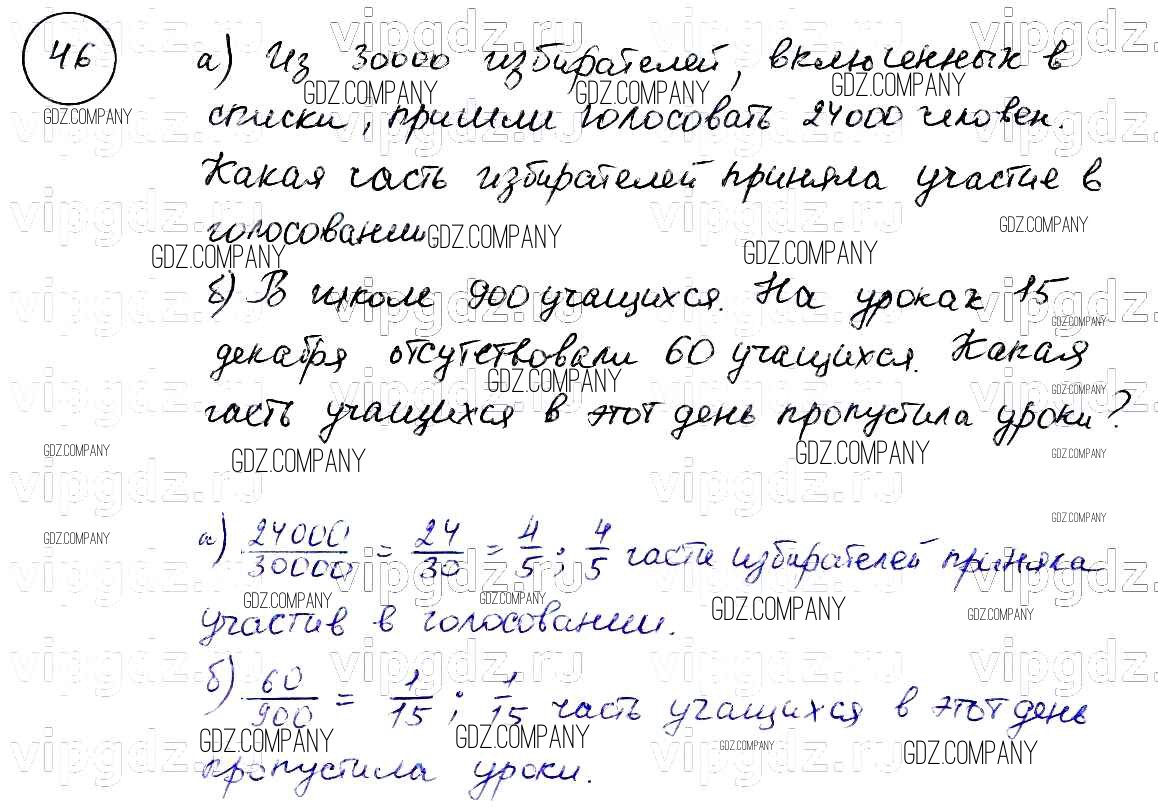 46
а) Из 30000 избирателей, включенных в
списки, пришли голосовать 24000 человек.
Какая часть избирателей приняла участие в
голосовании
б) В школе 900 учащихся. На уроках 15
декабря отсутствовали 60 учащихся. Какая
часть учащихся в этот день пропустила уроки?
а) 24000/30000 = 24/30 = 4/5; 4/5 части избирателей приняла
участив в голосовании.
б) 60/900 = 1/15; 1/15 часть учащихся в этот день
пропустила уроки.
GDZ.COMPANY
vipgdz.ru